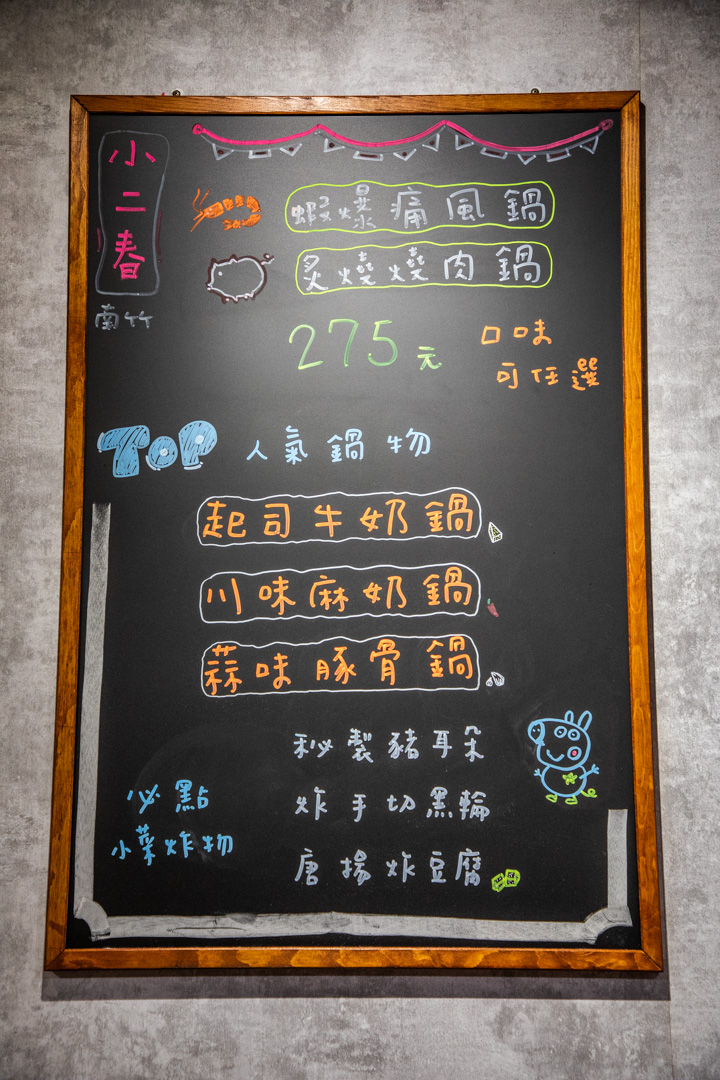 小二春
南竹
蝦爆痛風鍋
炙燒燒肉鍋
275元
口味
可任選
TOP 人氣鍋物
起司牛奶鍋
川味麻奶鍋
蒜味豚骨鍋
必點
小菜炸物
秘製豬耳朵
炸手切黑輪
唐揚炸豆腐